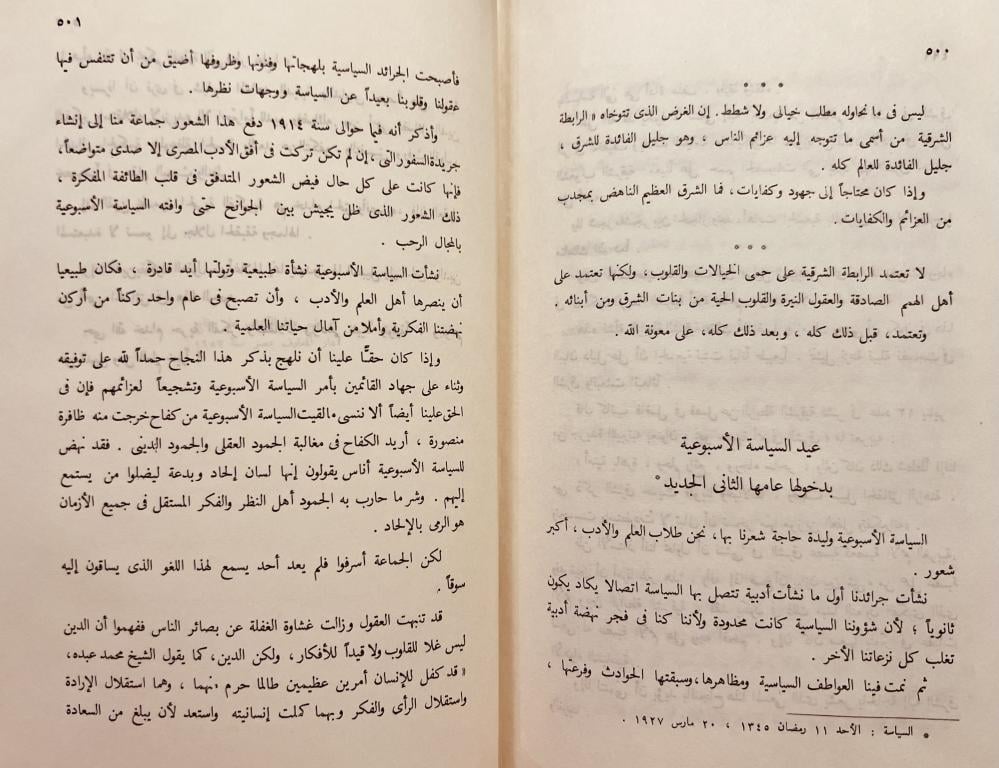 ٥٠٠
* * *
ليس فى ما نحاوله مطلب خيالى ولا شطط. إن الغرض الذى تتوخاه « الرابطة
الشرقية من أسمى ما تتوجه إليه عزائم الناس ، وهو جليل الفائدة للشرق ،
جليل الفائدة للعالم كله .
وإذا كان محتاجاً إلى جهود وكفايات، فما الشرق العظيم الناهض بمجدب
من العزائم والكفايات .
* * *
لا تعتمد الرابطة الشرقية على حمى الخيالات والقلوب، ولكنها تعتمد على
أهل الهمم الصادقة والعقول النيرة والقلوب الحية من بنات الشرق ومن أبنائه .
وتعتمد، قبل ذلك كله ، وبعد ذلك كله، على معونة الله .
عيد السياسة الأسبوعية
بدخولها عامها الثانى الجديد *
السياسة الأسبوعية وليدة حاجة شعرنا بها، نحن طلاب العلم والأدب ، أكبر
شعور .
نشأت جرائدنا أول ما نشأت أدبية تتصل بها السياسة اتصالا يكاد يكون
ثانوياً ؛ لأن شؤوننا السياسية كانت محدودة ولأننا كنا فى فجر نهضة أدبية
تغلب كل نزعاتنا الأخر .
ثم نمت فينا العواطف السياسية ومظاهرها،وسبقتها الحوادث وفرعتها ،
* السياسة : الأحد ١١ رمضان ١٣٤٥ ، ٢٠ مارس ١٩٢٧ .
٥٠١
فأصبحت الجرائد السياسية بلهجاتها وفنونها وظروفها أضيق من أن تتنفس فيها
عقولنا وقلوبنا بعيداً عن السياسة ووجهات نظرها .
وأذكر أنه فيما حوالى سنة ١٩١٤ دفع هذا الشعور جماعة منا إلى إنشاء
جريدة السفور التى ، إن لم تكن تركت فى أفق الأدب المصرى إلا صدى متواضعاً،
فإنها كانت على كل حال فيض الشعور المتدفق فى قلب الطائفة المفكرة ،
ذلك الشعور الذى ظل يجيش بين الجوانح حتى وافته السياسة الأسبوعية
بالمجال الرحب .
نشأت السياسة الأسبوعية نشأة طبيعية وتولتها أيد قادرة ، فكان طبيعيا
أن ينصرها أهل العلم والأدب ، وأن تصبح فى عام واحد ركناً من أركن
نهضتنا الفكرية وأملا من آمال حياتنا العلمية .
وإذا كان حقًّا علينا أن نلهج بذكر هذا النجاح حمداً لله على توفيقه
وثناء على جهاد القائمين بأمر السياسة الأسبوعية وتشجيعاً لعزائمهم فإن فى
الحق علينا أيضاً ألا ننسى ما لقيت السياسة الأسبوعية من كفاح خرجت منه ظافرة
منصورة ، أريد الكفاح فى مغالبة الجمود العقلى والجمود الدينى . فقد نهض
للسياسة الأسبوعية أناس يقولون إنها لسان إلحاد وبدعة ليضلوا من يستمع
إليهم . وشر ما حارب به الجمود أهل النظر والفكر المستقل فى جميع الأزمان
هو الرمى بالإلحاد .
لكن الجماعة أسرفوا فلم يعد أحد يسمع لهذا اللغو الذى يساقون إليه
سوقاً .
قد تنبهت العقول وزالت غشاوة الغفلة عن بصائر الناس ففهموا أن الدين
ليس غلا للقلوب ولا قيداً للأفكار، ولكن الدين، كما يقول الشيخ محمد عبده،
« قد كفل للإنسان أمرين عظيمين طالما حرم منهما ، وهما استقلال الإرادة
واستقلال الرأى والفكر وبهما كملت إنسانيته واستعد لأن يبلغ من السعادة